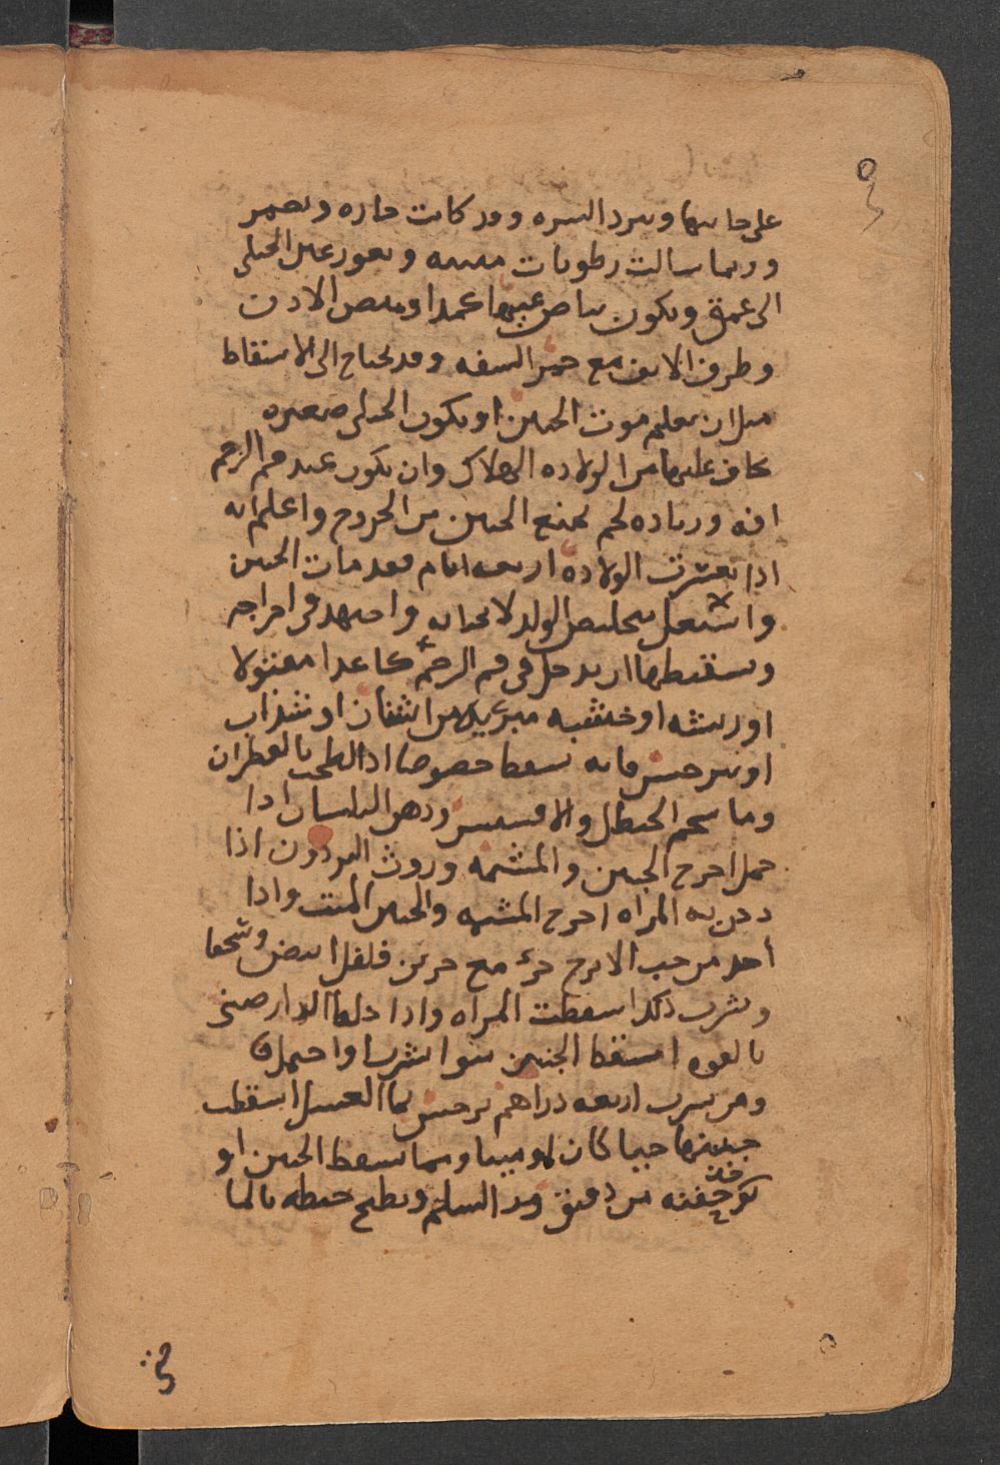 على جانبها وتبرد السره وقد كانت حاره وتضمر
وربما سالت رطوبات منتنه وتغور عين الحبلى
الى عمق ويكون بياض عينها كمدا وبيض الاذن
وطرف الانف مع حمره الشفه وقد يحتاج الى الاسقاط
مثل ان يعلم موت الجنين او يكون الحبلى صغيره
يخاف عليها من الولاده الهلاك وان يكون عند فم الرحم
افه وزياده لحم يمنع الجنين من الخروج واعلم انه
اذا تعسرت الولاده اربعه ايام فقد مات الجنين
ولا تشتغل بتخليص الولد لا بحياته واجتهد في اخراجه
وتسقيطها ان يدخل في فم الرحم كاغدا مفتولا
او ريشه او خشبه مبريه من اشنان او شذاب
او نرجس فانه يسقط خصوصا اذا لطخ بالقطران
وما شحم الحنظل والافسنتين ودهن البلسان اذا
حمل اخرج الجنين والمشيمه وروث البردون اذا
دخن به المراه اخرج المشيمه والجنين الميت واذا
اخذ من حب الاترج جزء مع جزين فلفل ابيض وسحقا
وشرب ذلك اسقطت المراه واذا خلط الدارصيني
بالفوه اسقط الجنين سوا شرب او احتمل
ومن شرب اربعه دراهم نرجس بما العسل اسقطت
جنينها حيا كان او ميتا ومما يسقط الجنين ان
يوخذ حفنه من دقيق وبطبخ حنطه بالما